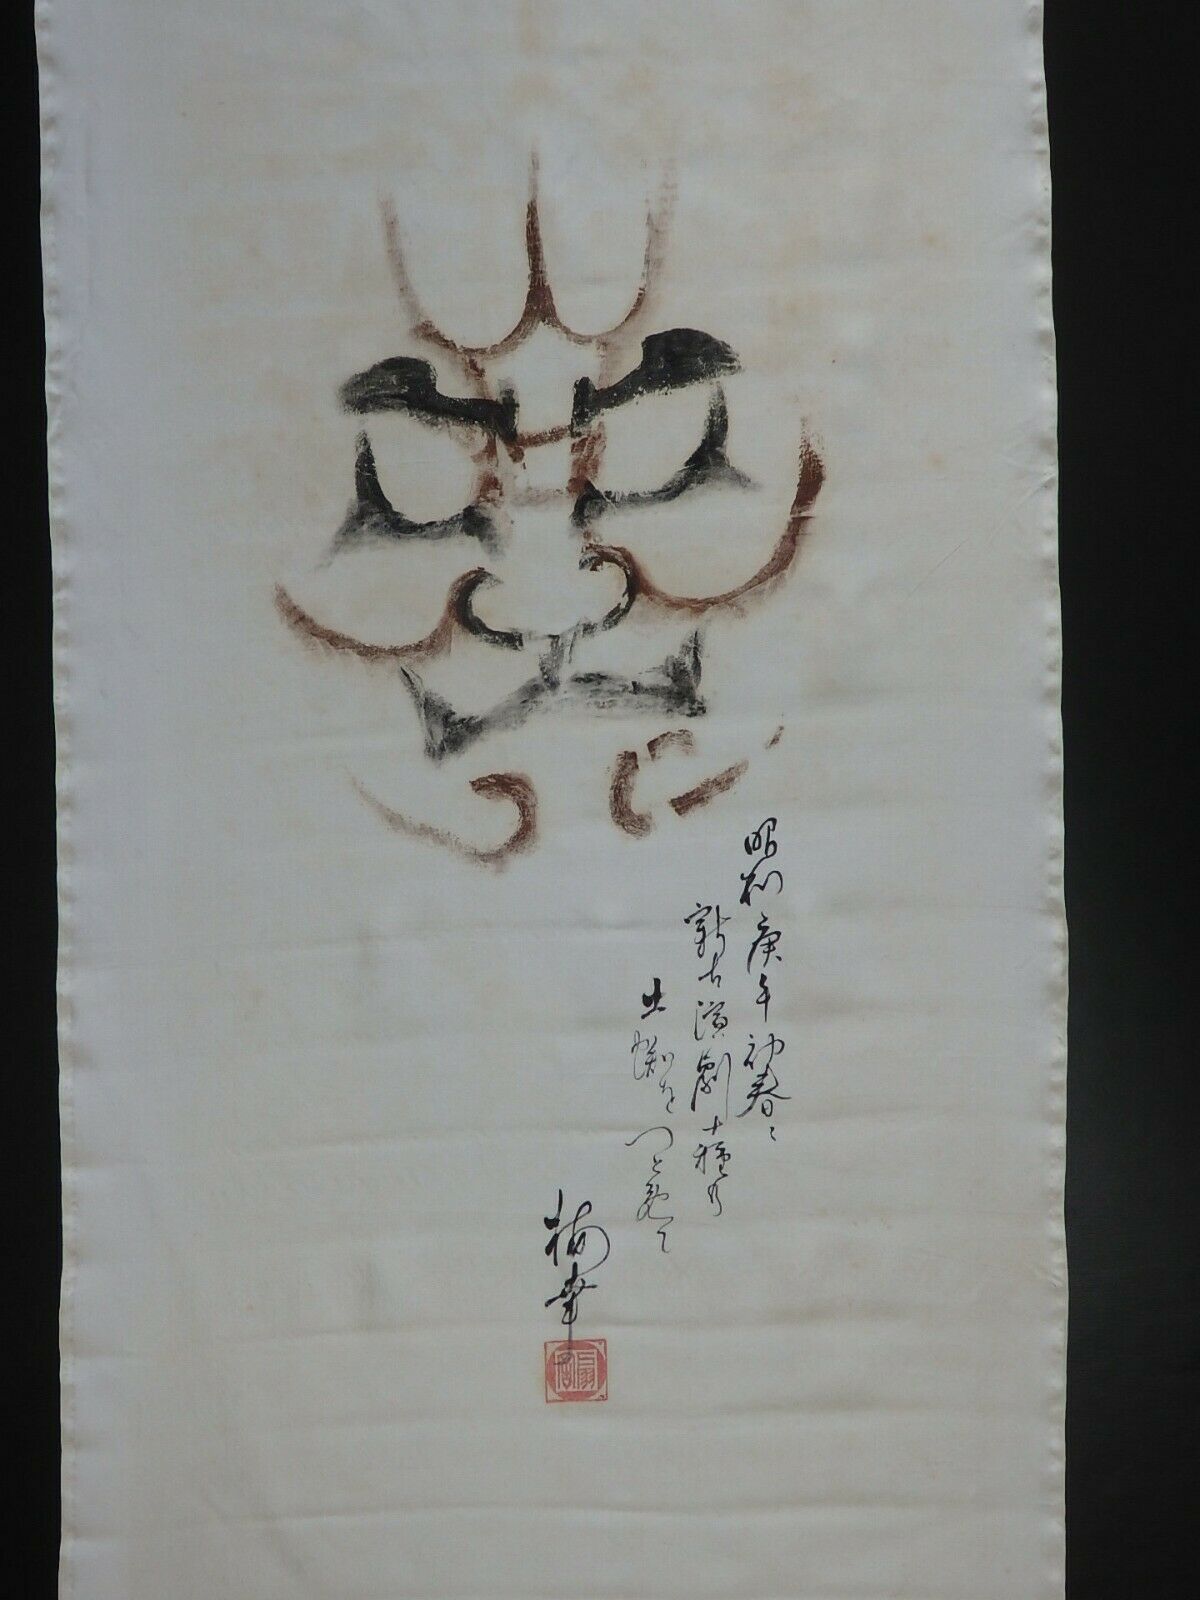 昭和庚午初春に
新古演劇十種の
土蜘をつとめて
梅幸